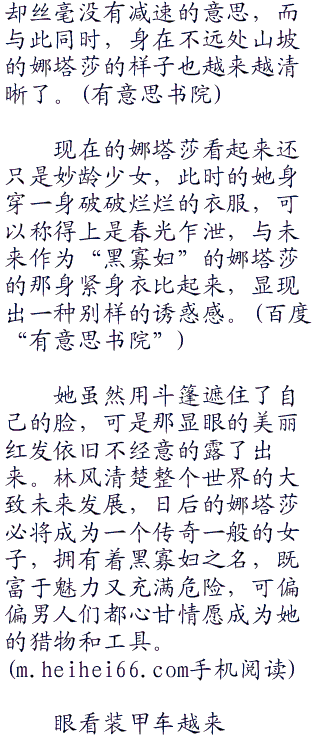 却丝毫没有减速的意思，而
与此同时，身在不远处山坡
的娜塔莎的样子也越来越清
晰了。(有意思书院)
现在的娜塔莎看起来还
只是妙龄少女，此时的她身
穿一身破破烂烂的衣服，可
以称得上是春光乍泄，与未
来作为“黑寡妇”的娜塔莎
的那身紧身衣比起来，显现
出一种别样的诱惑感。(百度
“有意思书院”)
她虽然用斗篷遮住了自
己的脸，可是那显眼的美丽
红发依旧不经意的露了出
来。林风清楚整个世界的大
致未来发展，日后的娜塔莎
必将成为一个传奇一般的女
子，拥有着黑寡妇之名，既
富于魅力又充满危险，可偏
偏男人们都心甘情愿成为她
的猎物和工具。
(m.heihei66.com手机阅读)
眼看装甲车越来